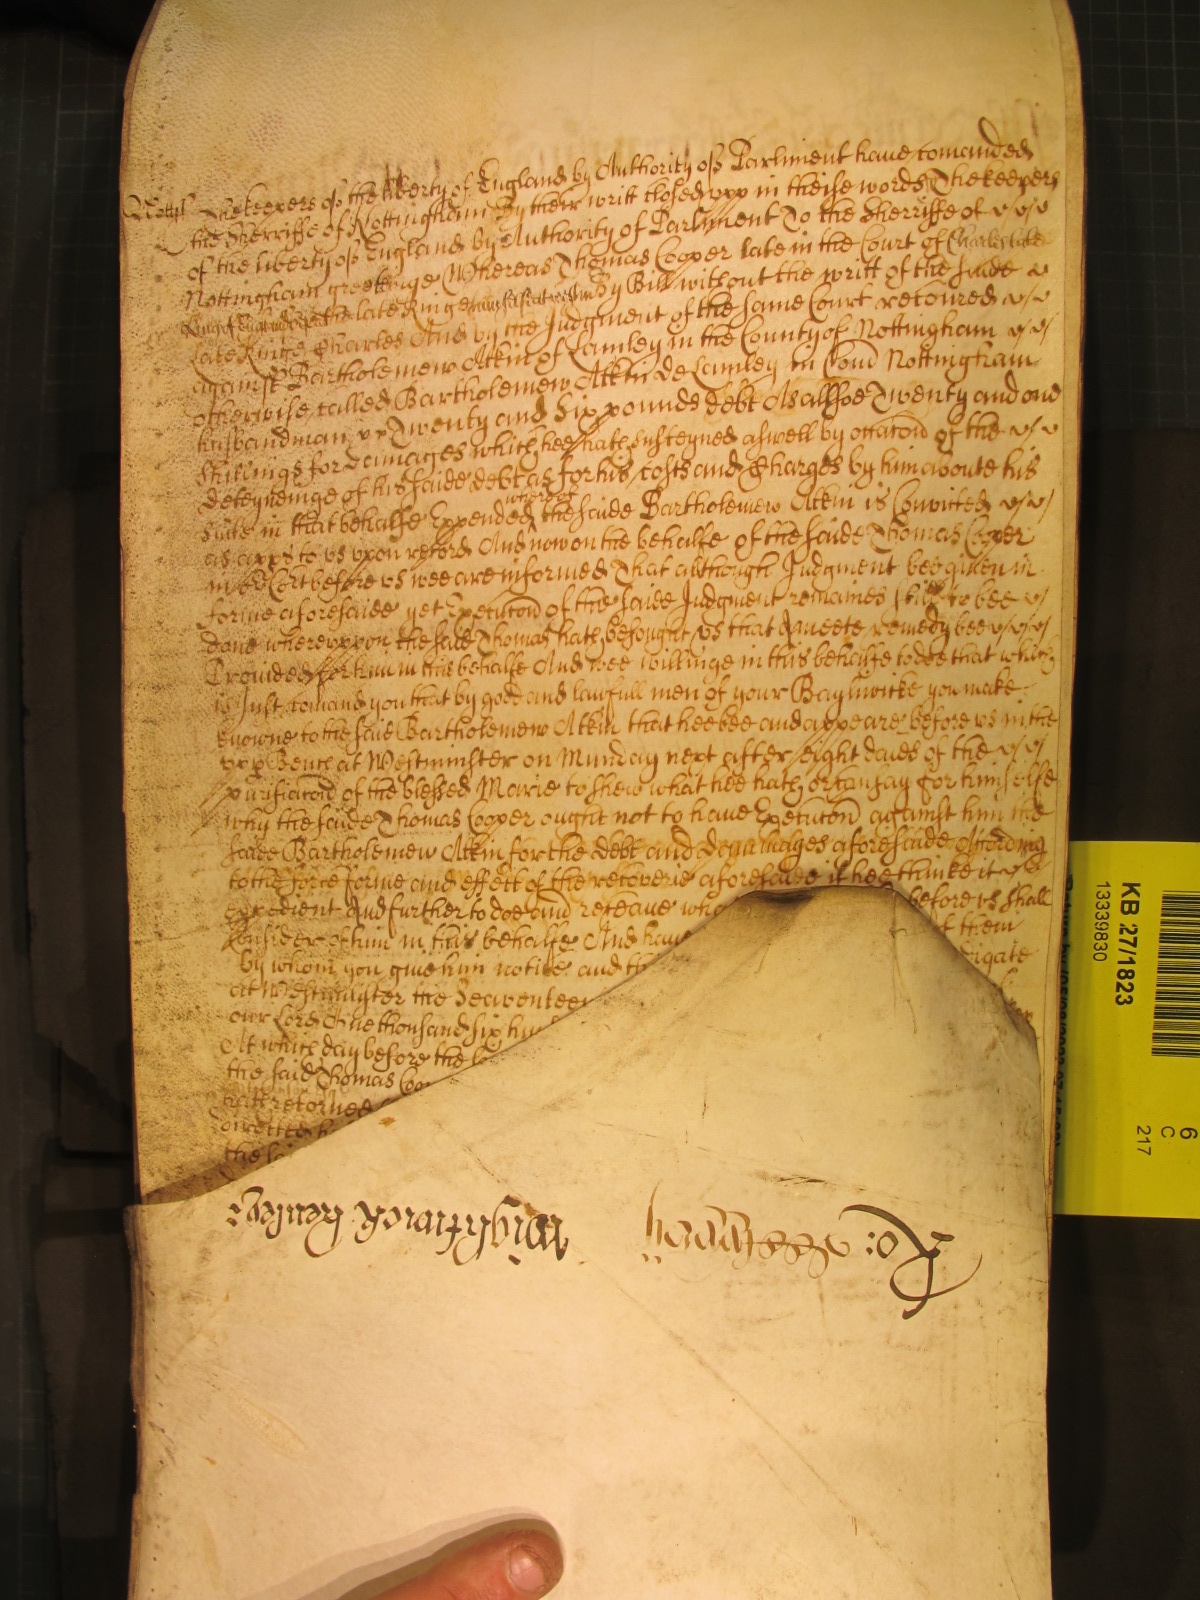 Notts The keepers of the liberty of England by Authority of Parliment have comanded
the Sherriffe of Nottingham By their writt closed upp in theise words The keepers
of the liberty of England by Authority of Parliment To the Sherriffe of
Nottingham greetinge Whereas Thomas Cooper late in the Court of Charles late
King of England before the late Kinge himselfe at Westm By Bill without the writt of the saide
Late Kinge Charles And by the Judgment of the same Court recovred
against Bartholemew Atkin of Lamley in the County of Nottingham
otherwise called Bartholemew Atkin de Lamley in Com Nottingham
husbandman Twenty and Six pounds debt As allsoe Twenty and one
Shillings for damages which hee hath susteyned aswell by occacon of the
deteyneinge of his saide debt as for his costs and Charges by him aboute his
suite in that behalfe Expended whereof the saide Bartholemew Atkin is Convicted
as apprs to us upon record And now on the behalfe of the saide Thomas Cooper
in Court before us wee are informed That although Judgment bee given in
forme aforesaide yet Execucon of the saide Judgment remaines still to bee
done whereuppon the saide Thomas hath besought us that a meete remedy bee
Provided for him in this behalfe And wee willinge in this behalfe to doe that which
is Just comand you that by good and lawfull men of your Bayliwicke you make
knowne to the said Bartholemew Atkin that hee bee and appeare before us in the
upp Bench at Westminster on Munday next after eight daies of the
purificacon of the blessed Marie to shew what hee hath or can say for himselfe
why the saide Thomas Cooper ought not to have Execucon against him the
saide Bartholemew Atkin for the debt and damages aforesaide According
to the force forme and effect of the recoverie aforesaide if hee thinke it
expedient And further to doe and receave wh before us shall
Consider of him in this behalfe And have of them
by whom you give him notice and th
at Westminster the Seaventee
our Lord One thousand six hu
At which day before the
the said Thomas Coo
hath retorned
directed
the
Ro:
Wightwick
KB 27/1823
13339830
6
C
217